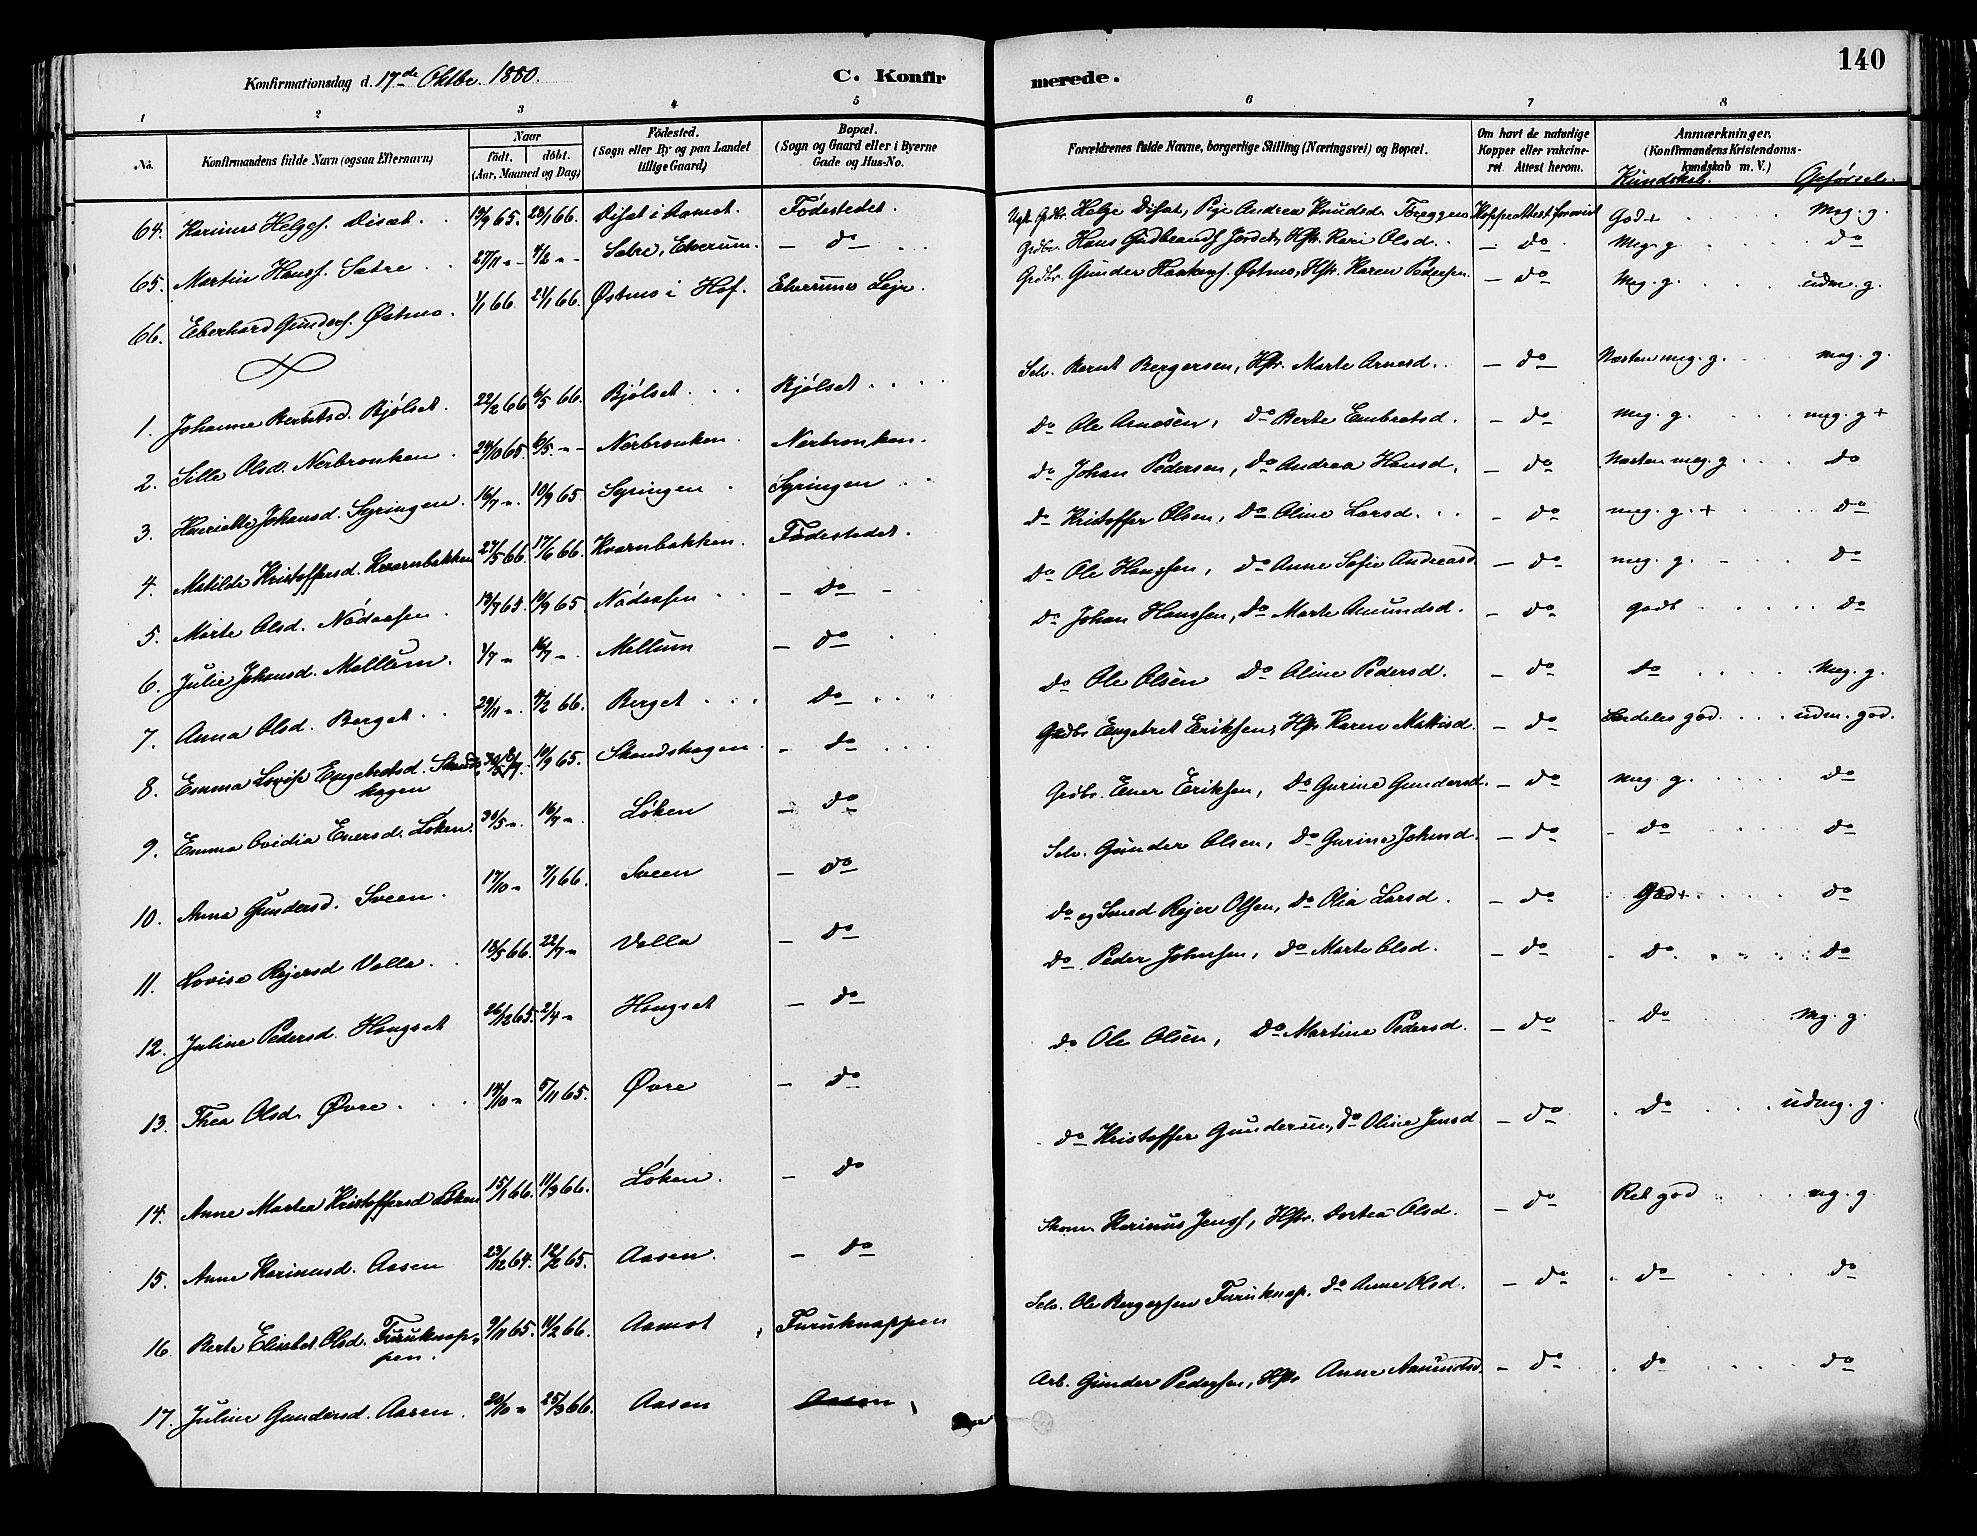 Konfirmationsdag d. 17de Oktbr. 1880. C. Konfirmerede. 140
1 2 3 4 5 6 7 8
No. Konfirmandens fulde Navn (ogsaa Efternavn) Naar født. døbt. (Aar, Maaned og Dag) Fødested. (Sogn eller By og paa Landet tillige Gaard) Bopæl. (Sogn og Gaard eller i Byerne Gade og Hus-No. Forældrenes fulde Navne, borgerlige Stilling (Næringsvei) og Bopæl. Om havt de naturlige Kopper eller vakcineret. Attest herom. Anmærkninger. (Konfirmandens Kristendomskundskab m. V.) Kundskab. Opførsel.
64. Karinus Helges. Disæt 19/9 65. 28/1 66. Disæt i Aamot. Fødestedet. Helge Disæt, Pige Andrea Knudsd. Koppeattest forevist God+ Meg. g.
65. Martin Hanss. Sætre 27/11 " 4/2 " Sætre, Elverum. do Grdbr. Hans Gudbrands. Jordet, Hstr. Kari Olsd. do Meg. g. do
66. Eberhard Gunders. Østmo. 1/1 66. 21/1 66. Østmo i Hof. Elverums Lejr. Grdbr. Gunder Haakens. Østmo, Hstr. Karen Pedersen. do Meg. g. udm. g.
1. Johanne Berntsd. Kjølset. 22/2 66 6/5 66. Kjølset Kjølset Selv. Bernt Bergersen, Hstr. Marte Arnesd. do Næsten meg. g. meg. g.
2. Sille Olsd. Nerbronken 24/10 65. 6/5 " Nerbronken Nerbronken. do Ole Arnesen, do Berte Embretsd. do meg. g. meg. g +
3. Johansd. Syringen. 16/7 " 10/9 65 Syringen Syringen do Johan Pedersen, do Andrea Hansd. do Næsten meg. g do
4. Matilde Kristoffersd. Kvernbakken 27/5 66. 17/6 66. Kvernbakken. Fødestedet. do Kristoffer Olsen, do Oline Larsd. do meg. g. + do
5. Marte Olsd. Nødaasen. 19/7 65. 10/9 65. Nødaasen do do Ole Hanssen, do Anne Sofie Andreasd. do meg. g. do
6. Julie Johansd. Mellum. 1/7 " 16/7 " Mellum do do Johan Hanssen, do Marte Amundsd. do godt do
7. Anna Olsd. Berget 29/11 " 4/2 66. Berget do do Ole Olsen do Oline Pedersd. do do Meg. g.
8. Emma Lovise Engebretsd. Skandshagen 10/9 65. Skandshagen do Grdbr. Engebret Eriksen, Hstr. Karen Mattisd. do Særdeles god. udm. god.
9. Emma Ovidia Enersd. Løken. 30/5 " 16/7 " Løken do Grdbr. Ener Eriksen, do Gurine Gundersd. do meg. g. do
10. Anna Gundersd. Sveen. 17/10 " 7/1 66. Sveen do Selv. Gunder Olsen, do Gurine Johnsd. do do do
11. Lovise Rejersd Valla 18/5 66. 22/7 " Valla do do og Smed Rejer Olsen, do Olia Larsd. do God+ do
12. Juline Pedersd. Hongset 26/12 65. 2/4 " Hongset do do Peder Johnsen, do Marte Olsd. do do do
13. Thea Olsd. Øvre 14/10 " 5/11 65. Øvre do do Ole Olsen, do Martine Pedersd. do do Mg. g.
14. Anne Martea Kristoffersd Løken 15/1 66. 11/3 66. Løken. do do Kristoffer Gundersen, do Oline Jensd do do udmg. g.
15. Anne Karinusd. Aasen 23/12 64. 12/2 65. Aasen. do Skom. Karinus Jenss, Hstr. Dortea Olsd. do Ret god mg. g
16. Berte Elisabet Olsd. Furuknappen. 9/11 65. 11/2 66. Aamot Furuknappen Selv. Ole Bergersen Furuknap. do Anne Olsd. do do do
17. Juline Gundersd. Aasen. 20/10 " 25/3 66. Aasen Aasen Arb. Gunder Pedersen, Hstr. Anne Amundsd. do do do